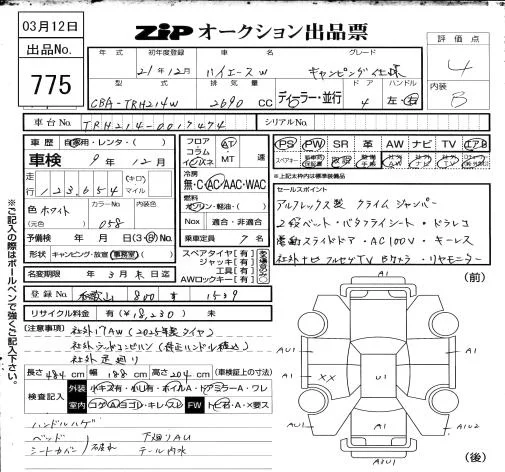 03月12日
ZiP オークション出品票
出品No. 775
年式 初年度登録 車名 グレード
21年12月 ハイエースW キャンピング仕様
型式 排気量 ドア ハンドル
CBA-TRH214W 2690 CC ディーラー・並行 4 左・右
評価点 4
内装 B
車台No. TRH214-0017474 シリアルNo.
車歴 自家用・レンタ・( )
車検 9年12月
走行 123,654 (キロ) マイル
色 ホワイト (元色) カラーNo 058 内装色
予備検 年 月 日 (3・8)No
形状 キャンピング・放宣(事務室)( )
名変期限 3月末日迄
フロア コラム インパネ AT MT 速
冷房 無・C・AC・AAC・WAC
燃料 ガソリン・軽油・( )
Nox 適合・非適合
乗車定員 7名
スペアタイヤ[有]
ジャッキ[有]
工具[有]
AWロックキー[有]
PS PW SR 革 AW ナビ TV エアB
※上記太枠内は標準装備品
セールスポイント
アルフレックス製 クライム ジャンパー
2段ベット・バタフライシート・ドラレコ
電動スライドドア・AC100V・キーレス
社外ナビ フルセグTV Bカメラ・リヤモニター
登録No. 和歌山 800 す 1539
リサイクル料金 有(¥18,230) 未
[注意事項] 社外17AW(2025年製タイヤ)
社外ウッドコンビハン(純正ハンドル積込)
社外足廻り
長さ484cm 幅188cm 高さ204cm (車検証上の寸法)
検査記入 外装 小キズ有・小凹有・ホイルA・ドアミラーA・ワレ
室内 コゲ(A)ヨゴレ・キレ・スレ FW トビ石・A・×要ス
ハンドルハゲ
ベッド シートカバー 破れ 下廻りAU
テール内水
※ご記入の際はボールペンで強くご記入下さい。
(前)
A1
AU1 A1 XX U1 A1
A1 AU2
A3U1
(後)